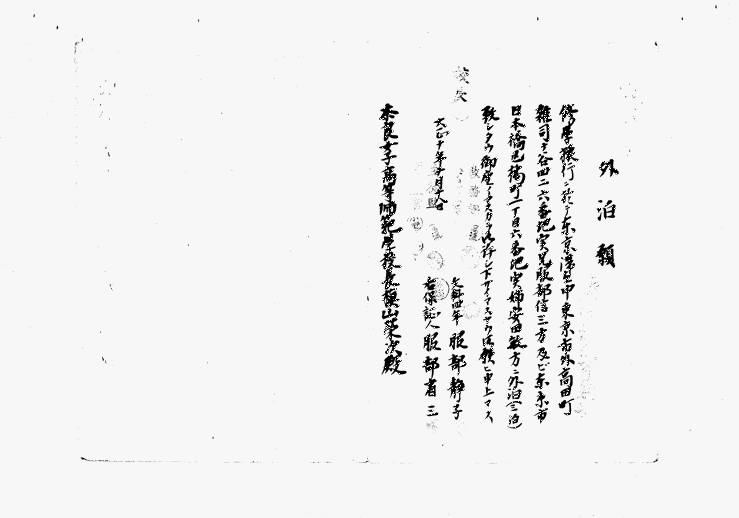 外泊願
修学旅行ニ於ケル東京滞在中東京市外高田町
雑司ヶ谷四二六番地実兄服部信三方及ビ東京市
日本橋区橘町一丁目六番地実姉安田敏方ニ外泊(三泊)
致シタウ御座イマスカラ御許シ下サイマスヤウ御願ヒ申上マス
大正十年 月十八日
文科四年 服部静子
右保証人 服部省三
奈良女子高等師範学校長槇山榮次殿